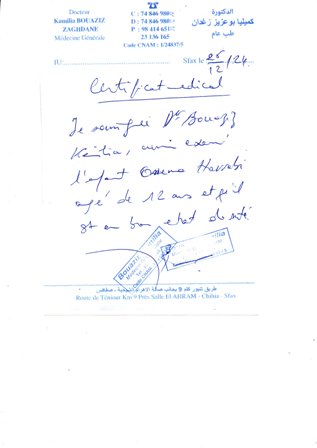 Docteur
Kamilia BOUAZIZ
ZAGHDANE
Médecine Générale
C : 74 846 980
D : 74 846 980
P : 98 414 651
23 136 165
Code CNAM : 1/24837/5
الدكتورة
كميليا بوعزيز زغدان
طب عام
Sfax le 25/12/24
Certificat medical
Je soussigné Dr Bouaziz
Kamilia, avoir examiné
l'enfant
agé de 12 ans et qu'il
est en bon etat de santé
طريق تنيور كلم 9 بجانب صالة الأهرام
Route de Téniour Km 9 Près Salle El AHRAM - Chihia - Sfax